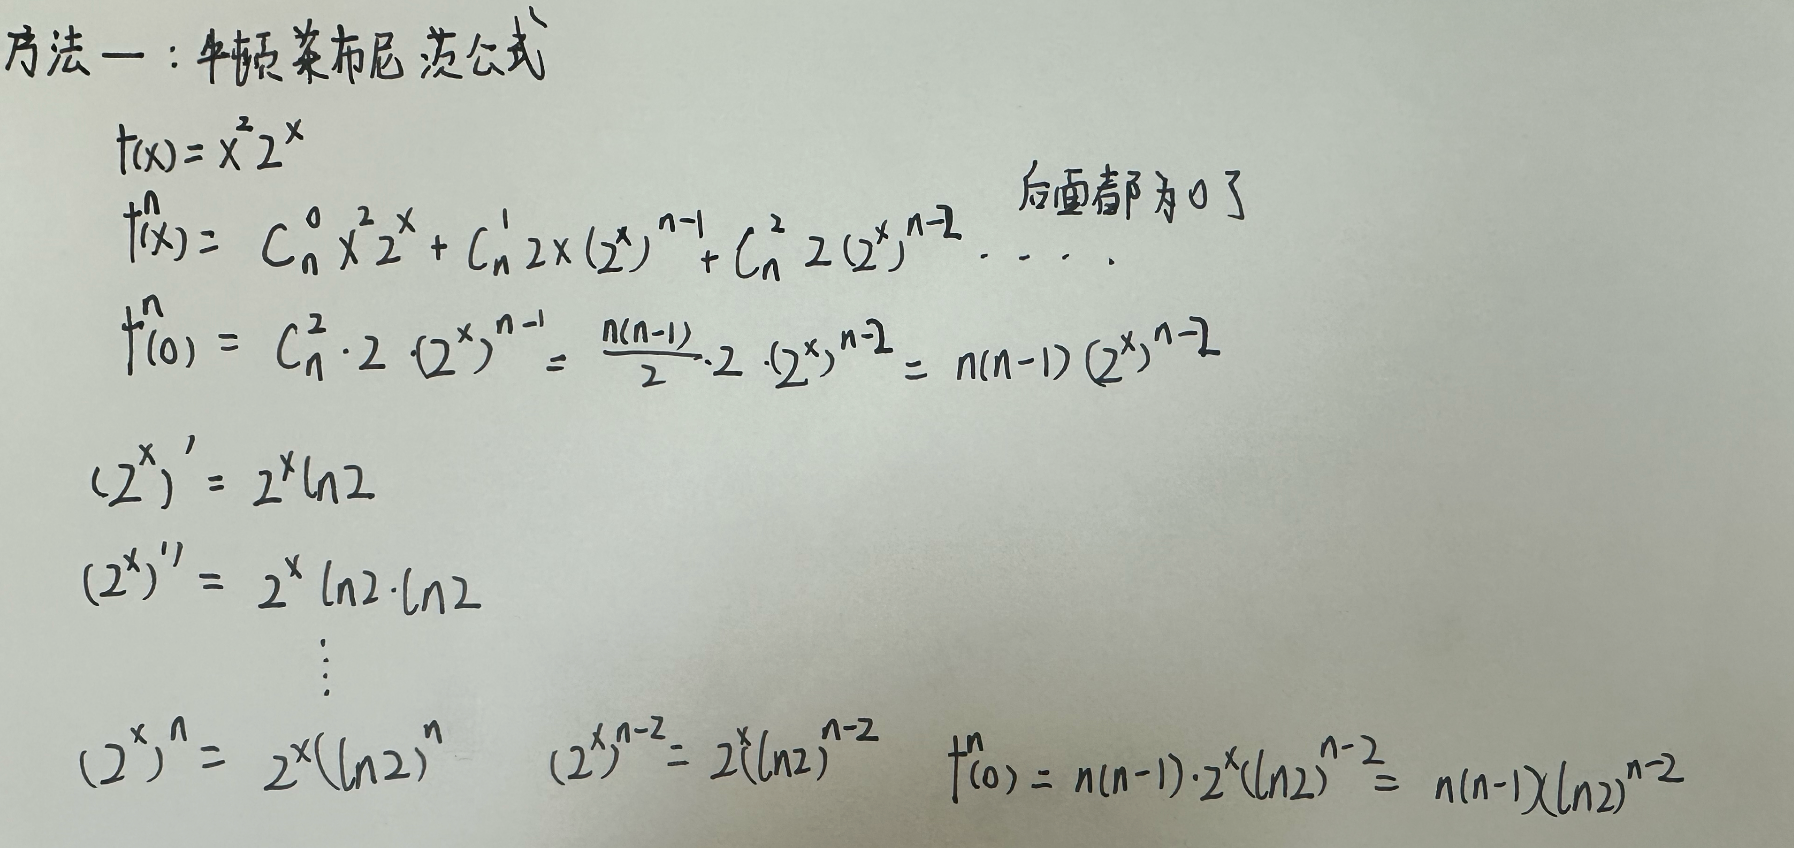 方法一:牛顿莱布尼茨公式
f(x)=x²2ˣ
后面都为0了
fⁿ(x)= C_n^0 x² 2^x + C_n^1 2x (2^x)^{n-1} + C_n^2 2 (2^x)^{n-2} · · · ·
fⁿ(0) = C_n^2 · 2 · (2^x)^{n-1} = \frac{n(n-1)}{2} · 2 · (2^x)^{n-2} = n(n-1) (2^x)^{n-2}
(2^x)' = 2^x ln2
(2^x)'' = 2^x ln2·ln2
⋮
(2^x)^n = 2^x(ln2)^n (2^x)^{n-2} = 2^x(ln2)^{n-2} fⁿ(0) = n(n-1)·2^x(ln2)^{n-2} = n(n-1)(ln2)^{n-2}